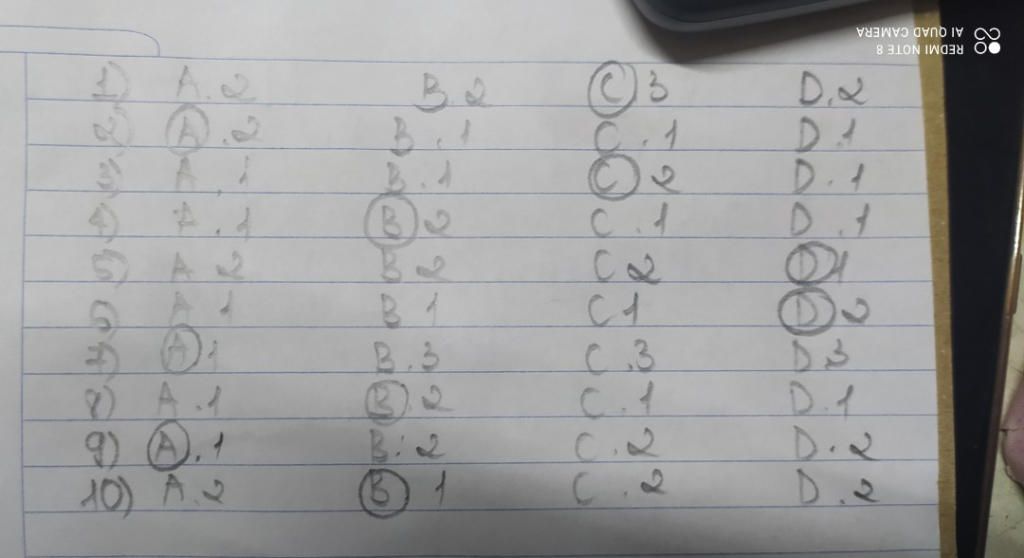 1) A. 2 B. 2 C 3 D. 2
2) A. 2 B. 1 C. 1 D. 1
3) A. 1 B. 1 C 2 D. 1
4) A. 1 B 2 C. 1 D. 1
5) A. 2 B 2 C 2 D 1
6) A 1 B 1 C 1 D 2
7) A 1 B. 3 C. 3 D 3
8) A. 1 B. 2 C. 1 D. 1
9) A. 1 B. 2 C. 2 D. 2
10) A. 2 B 1 C. 2 D. 2
REDMI NOTE 8
AI QUAD CAMERA